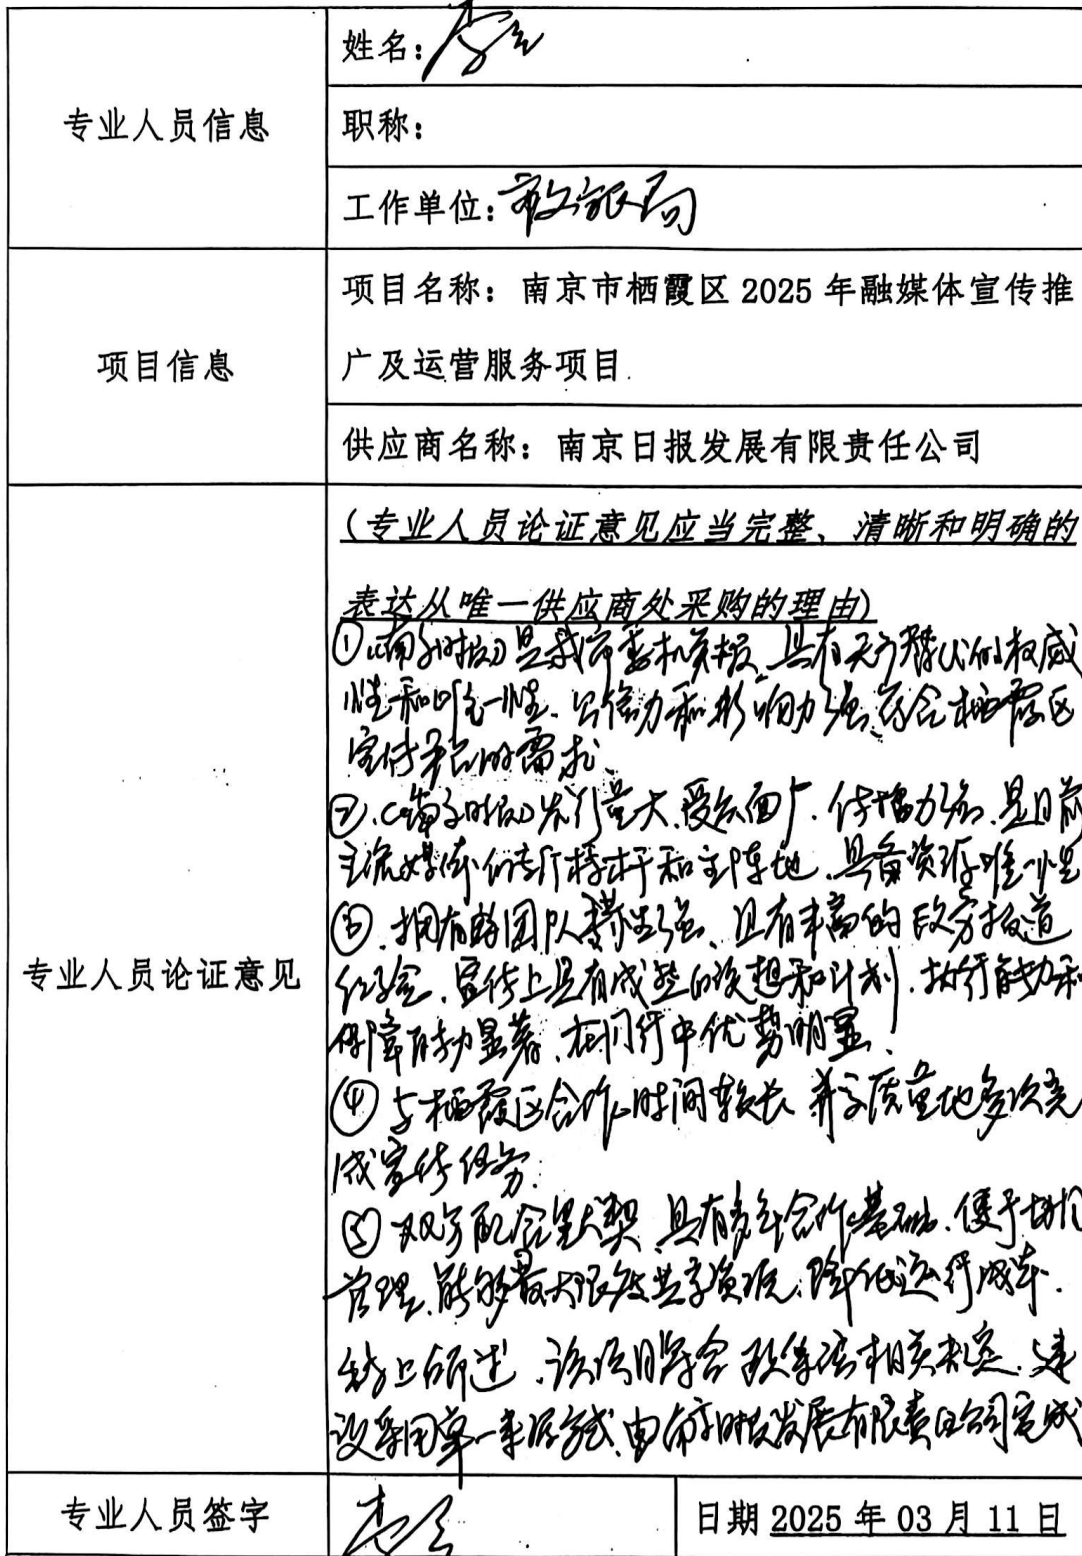 专业人员信息
姓名：李
职称：
工作单位：市文旅局
项目信息
项目名称：南京市栖霞区 2025 年融媒体宣传推
广及运营服务项目
供应商名称：南京日报发展有限责任公司
专业人员论证意见
（专业人员论证意见应当完整、清晰和明确的
表达从唯一供应商处采购的理由）
①《南京日报》是我市委机关报、具有无可替代的权威
性和唯一性、公信力和影响力强、符合栖霞区
宣传的需求、
②、《南京日报》发行量大、受众面广、传播力强、是目前
主流媒体的标杆和主阵地、具备资源唯一性
③、拥有的团队强、且有丰富的政务报道
经验、宣传上具有成型的设想和计划、执行能力和
保障能力显著、在同行中优势明显、
④ 与栖霞区合作时间较长 并高质量地多次完
成宣传任务.
⑤ 双方配合默契、具有多年合作基础、便于协调
管理、能够最大限度共享资源、降低运行成本.
综上所述、该项目符合政采法相关规定、建
议采用单一来源方式、由南京日报发展有限责任公司完成
专业人员签字
李
日期 2025 年 03 月 11 日